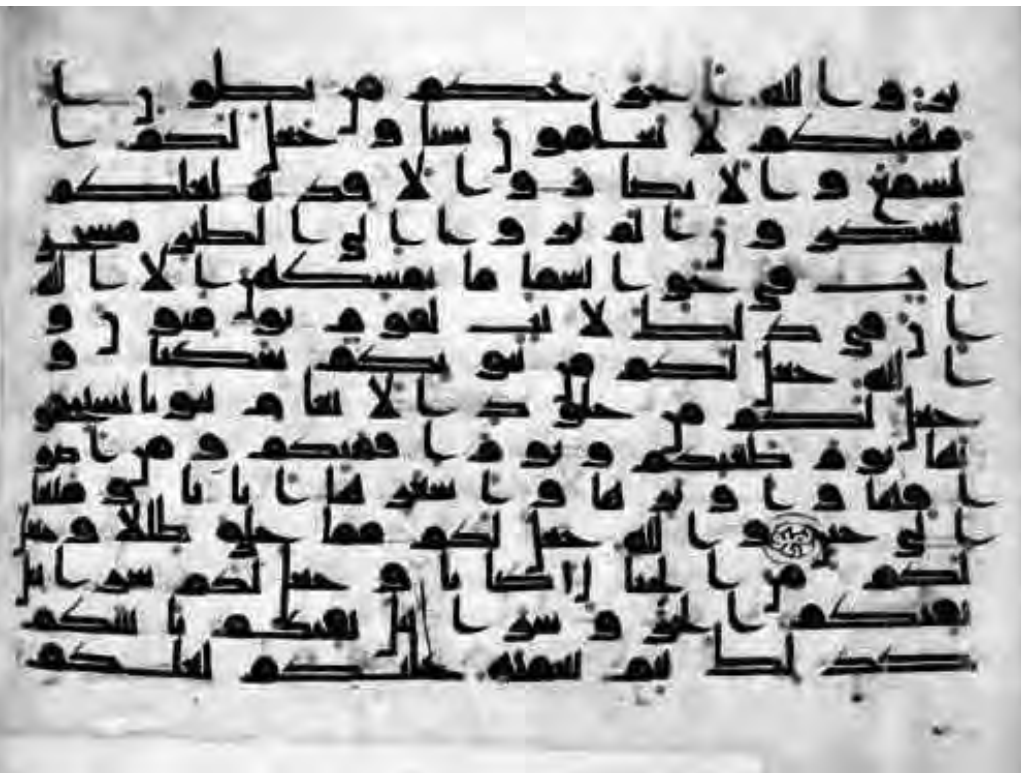 ير و الله اخرجكم من بطون ا
مهتكم لا تعلمون شيا و جعل لكم ا
لسمع و الابصر و الافده لعلكم
تشكرون الم يروا الى الطير مسخر
ا ت في جو السما ما يمسكهن الا الله
ان في ذلك لايت لقوم يومنون و
الله جعل لكم من بيوتكم سكنا و
جعل لكم من جلود الانعام بيوتا تستخفو
نها يوم ظعنكم و يوم ا قمتكم و من اصو
ا فها و اوبرها و اشعرها اثاثا و متعا
الى حين و الله جعل لكم مما خلق ظللا و جعل
لكم من الجبال اكننا و جعل لكم سرابيل
تقيكم الحر و سرابيل تقيكم باسكم
كذلك يتم نعمته عليكم لعلكم